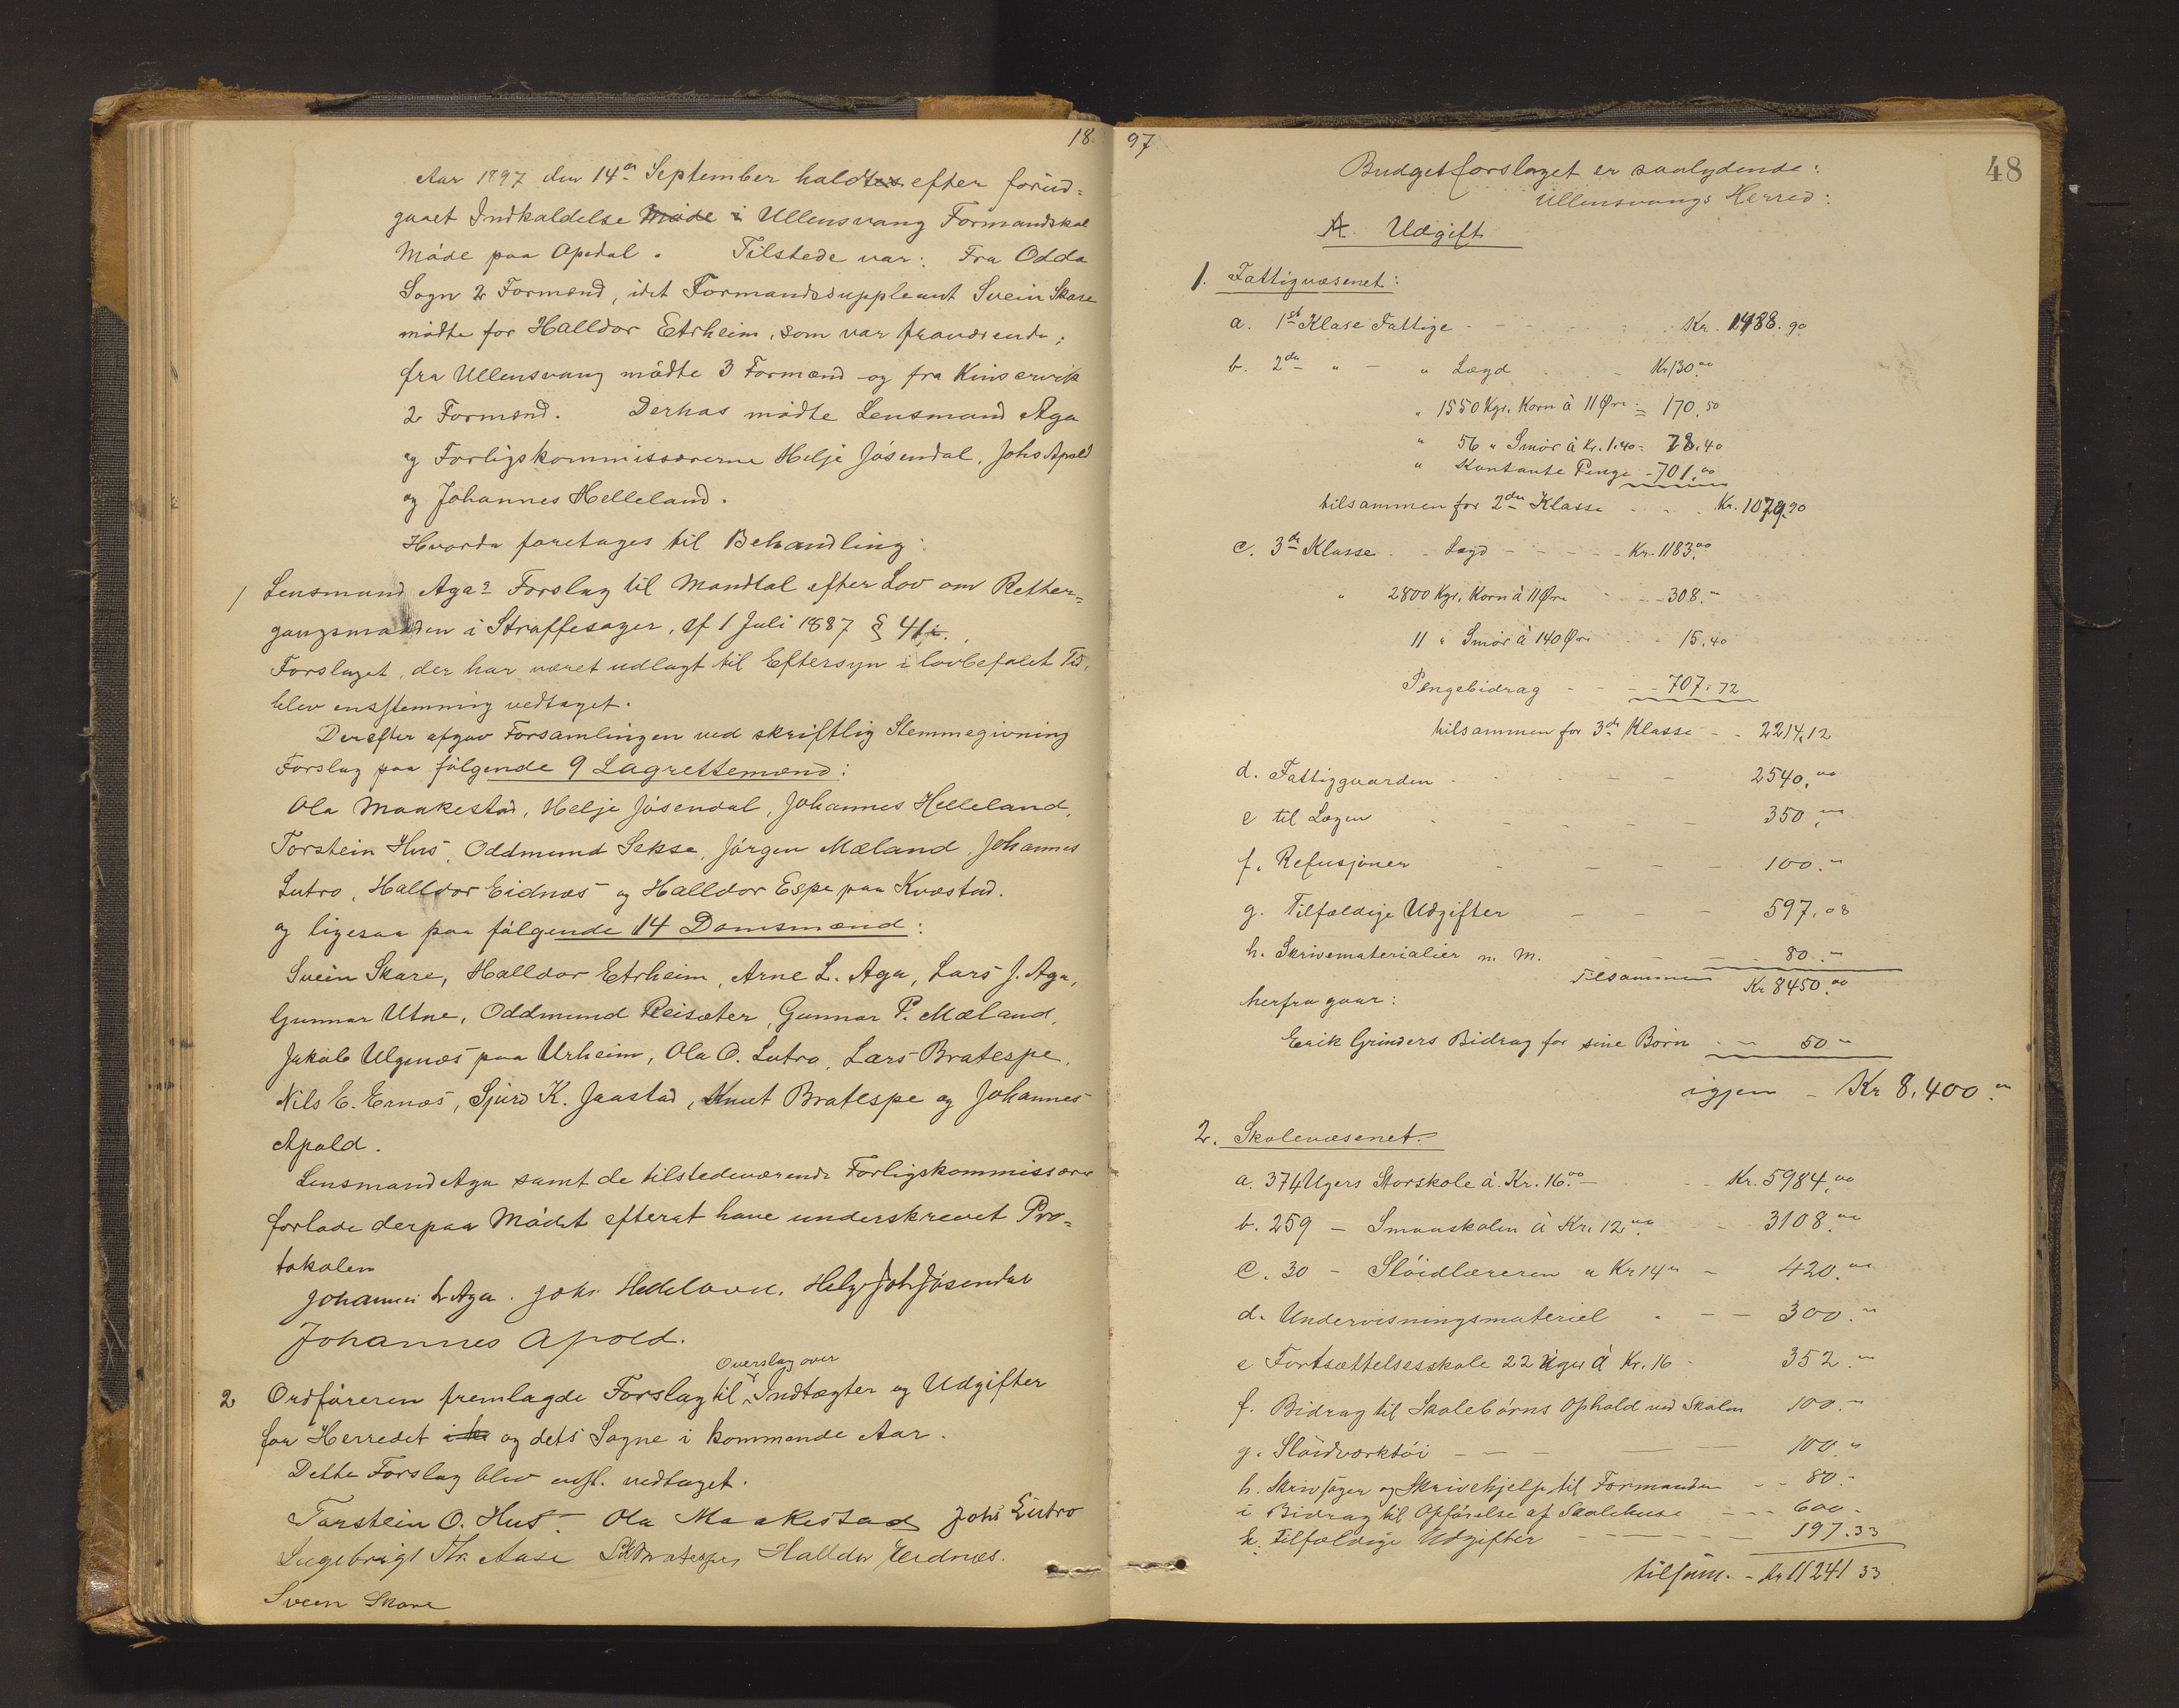 18
Aar 1897 den 14de September haldtes efter forud=
gaaet Indkaldelse Møde i Ullensvang Formandskab
Møde paa Apedal. Tilstede var: Fra Odda
Sogn 2 Formænd, idet Formandssuppleant Svein Skare
mødte for Halldor Etrheim, som var fraværende;
fra Ullensvang mødte 3 Formænd og fra Kinservik
2 Formænd. Derhos mødte Lensmand Aga
og Forligskommissærerne Helje Jösendal, Johs Apold
og Johannes Helleland.
Hvorda foretoges til Behandling:
1 Lensmand Agas Forslag til Mandtal efter Lov om Retter=
gangsmaaden i Straffesager, af 1 Juli 1887 § 41.
Forslaget, der har været udlagt til Eftersyn i lovbefalet Tid,
blev enstemmig vedtaget.
Derefter afgav Forsamlingen ved skriftlig Stemmegivning
Forslag paa følgende 9 Lagrettemænd:
Ola Maakestad, Helje Jösendal, Johannes Helleland,
Torstein Hus, Oddmund Sekse, Jörgen Mæland, Johannes
Lutro, Halldor Eidnæs og Halldor Espe paa Kvæstad.
og ligesaa paa følgende 14 Domsmænd:
Svein Skare, Halldor Etrheim, Arne L. Aga, Lars J. Aga,
Gunnar Utne, Oddmund Reisæter, Gunnar P. Mæland,
Jakob Ulgenæs paa Urheim, Ola O. Lutro, Lars Bratespe,
Nils E. Ernæs, Sjurd K. Jaastad, Knut Bratespe og Johannes
Apold.
Lensmand Aga samt de tilstedeværende Forligskommissærer
forlode derpaa Mødet efterat have underskrevet Pro=
tokolen
Johannes L Aga. Johs Helleland. Helje Joh Jösendal
Johannes Apold.
Overslag over
2 Ordføreren fremlagde Forslag til Indtægter og Udgifter
for Herredet og dets Sogne i kommende Aar.
Dette Forslag blev enst. vedtaget.
Torstein O. Hus. Ola Maakestad Johs Lutro
Ingebrigt Th. Aase Halldor Eidnæs.
Svein Skare
97
48
Budgetforslaget er saalydende:
Ullensvangs Herred:
A Udgift
1. Fattigvæsenet:
a. 1ste Klase Fattige - - Kr. 1488.90
b. 2den " - " Lægd - Kr 130.00
" 1550 Kgr. Korn à 11 Øre = 170.50
" 56 " Smör à Kr. 1.40 = 78.40
" Kontante Penge - 701.00
tilsammen for 2den Klasse - Kr. 1079.90
c. 3die Klasse - Lægd - - - Kr. 1183.00
" 2800 Kgr. Korn à 11 Øre - - 308.-
11 " Smör à 140 Øre - 15.40
Pengebidrag - - - 707.72
tilsammen for 3die Klasse - - 2214.12
d. Fattiggaarden - - - 2540.00
e til Lægen - - - 350.00
f. Refusjoner - - - 100.-
g. Tilfældige Udgifter - - - 597.08
h. Skrivematerialier m. M. - - - 80.-
Tilsammen Kr 8450.00
herfra gaar:
Eerik Grinders Bidrag for sine Börn - - 50 -
igjen - Kr 8,400.00
2. Skolevæsenet.
a. 374 Ugers Storskole à Kr. 16.00 - Kr. 5984.00
b. 259 - Smaaskolen à Kr. 12.00 - 3108.00
c. 30 - Slöidlæreren a Kr 14 " - 420.00
d. Undervisningsmateriel - - - 300.-
e Fortsættelsesskole 22 Uger à Kr. 16 - 352.-
f. Bidrag til Skolebörns Ophold ved Skolen 100.-
g. Slöidværktöi - - - 100.-
h. Skrivsager og Skrivehjelp til Formanden - - 80.-
i Bidrag til Opförelse af Skolehuse - - - 600 -
k. Tilfældige Udgifter - - - 197.33
tilsam. - Kr 11241 33